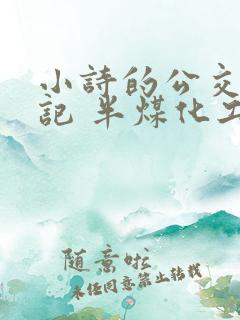 小詩的公交
記 半煤化工
随意啦
未经同意禁止转载